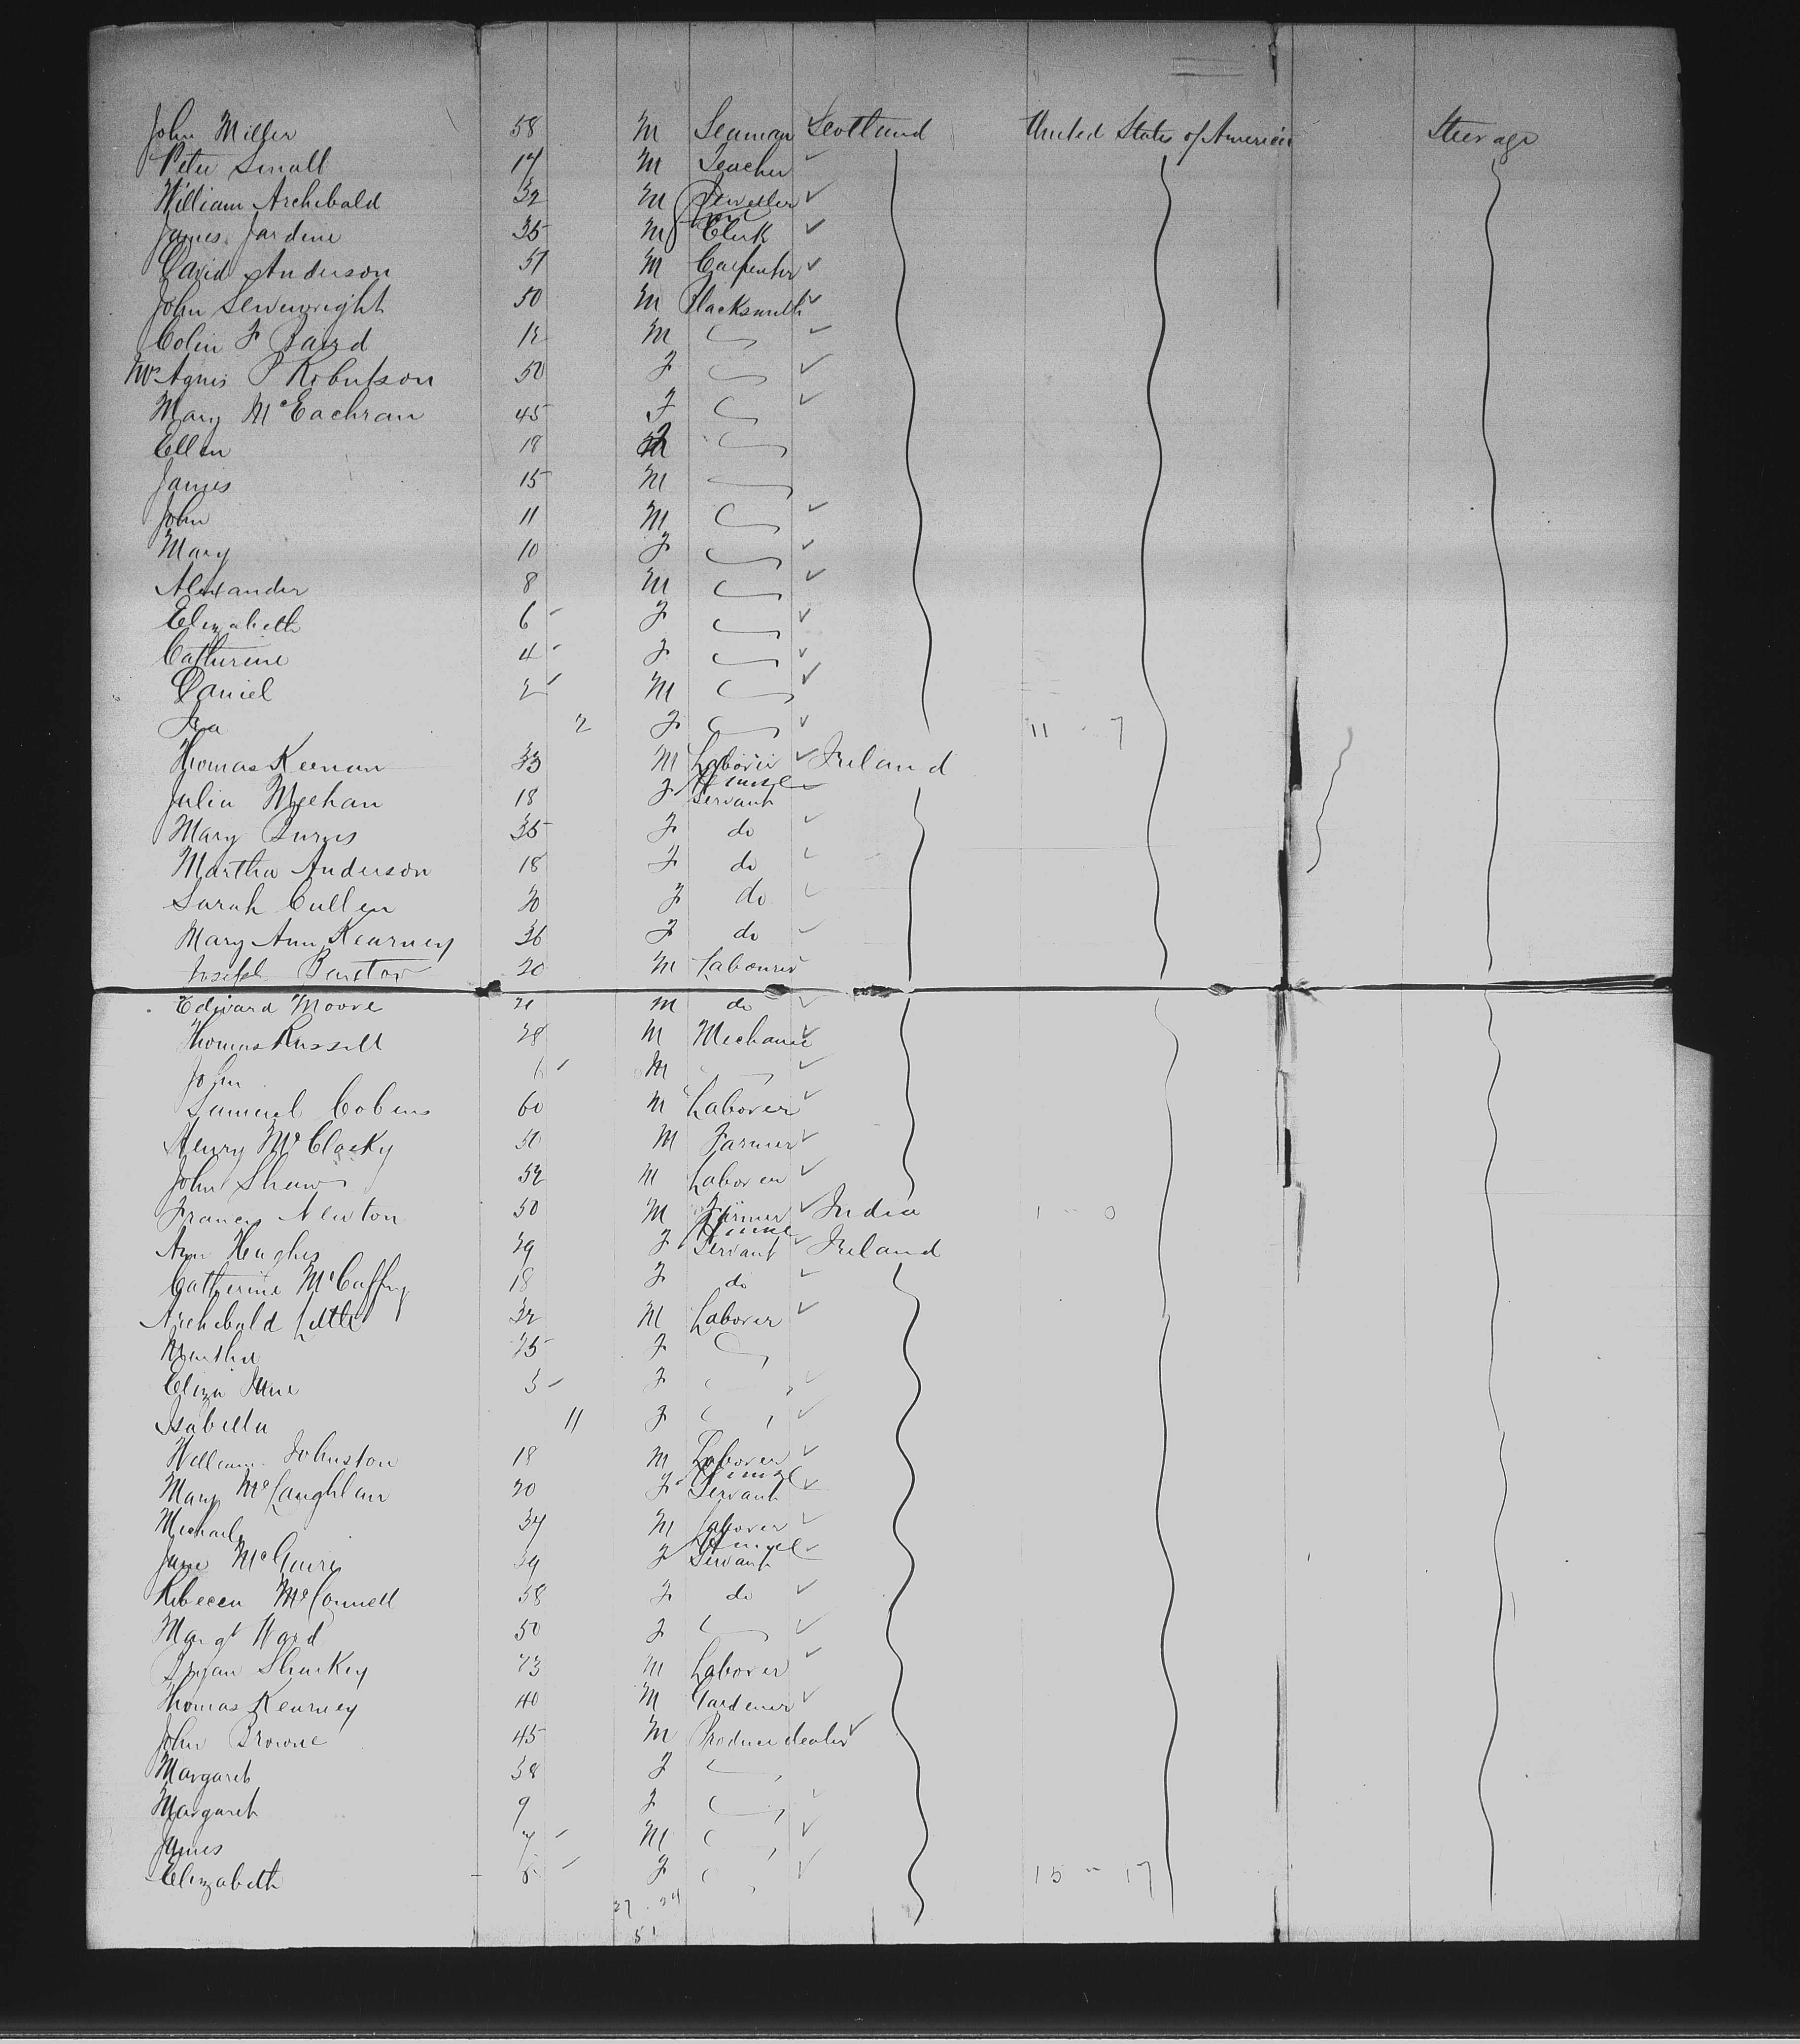 John Miller 58 M Seaman Scotland United States of America Steerage
Peter Small 17 M Teacher
William Archibald 32 M Jeweller
James Jardine 35 M Clerk
David Anderson 51 M Carpenter
John 50 M Blacksmith
Colin F Baird 12 M
Mrs Agnes P Robertson 50 F
Mary McEachran 45 F
Ellen 18 F
James 15 M
John 11 M
Mary 10 F
Alexander 8 M
Elizabeth 6 F
Catherine 4 F
Daniel 2 M
2 F 11 7
Thomas Keenan 33 M Laborer Ireland
Julia Meehan 18 F House Servant
Mary Burns 35 F do
Martha Anderson 18 F do
Sarah Cullen 20 F do
Mary Ann Kearney 36 F do
Joseph 20 M Labourer
Edward Moore 21 M do
Thomas Russell 28 M Mechanic
John 6 M
Samuel Cobens 60 M Laborer
Henry McClosky 50 M Farmer
John Shaw 52 M Laborer
Francis Newton 50 M Farmer India 1 0
Ann Hughes 39 F House Servant Ireland
Catherine McCaffry 18 F do
Archibald Little 32 M Laborer
Martha 25 F
Eliza Jane 3 F
Isabella 11 F
William Johnston 18 M Laborer
Mary McLaughlan 20 F House Servant
Michael 34 M Laborer
Jane McGuire 39 F House Servant
Rebecca McConnell 58 F do
Margt Ward 50 F
Bryan Sharkey 23 M Laborer
Thomas Kearney 40 M Gardener
John Browne 45 M Produce dealer
Margaret 38 F
Margaret 9 F
James 7 M
Elizabeth 5 F 15 17
27 . 24
51